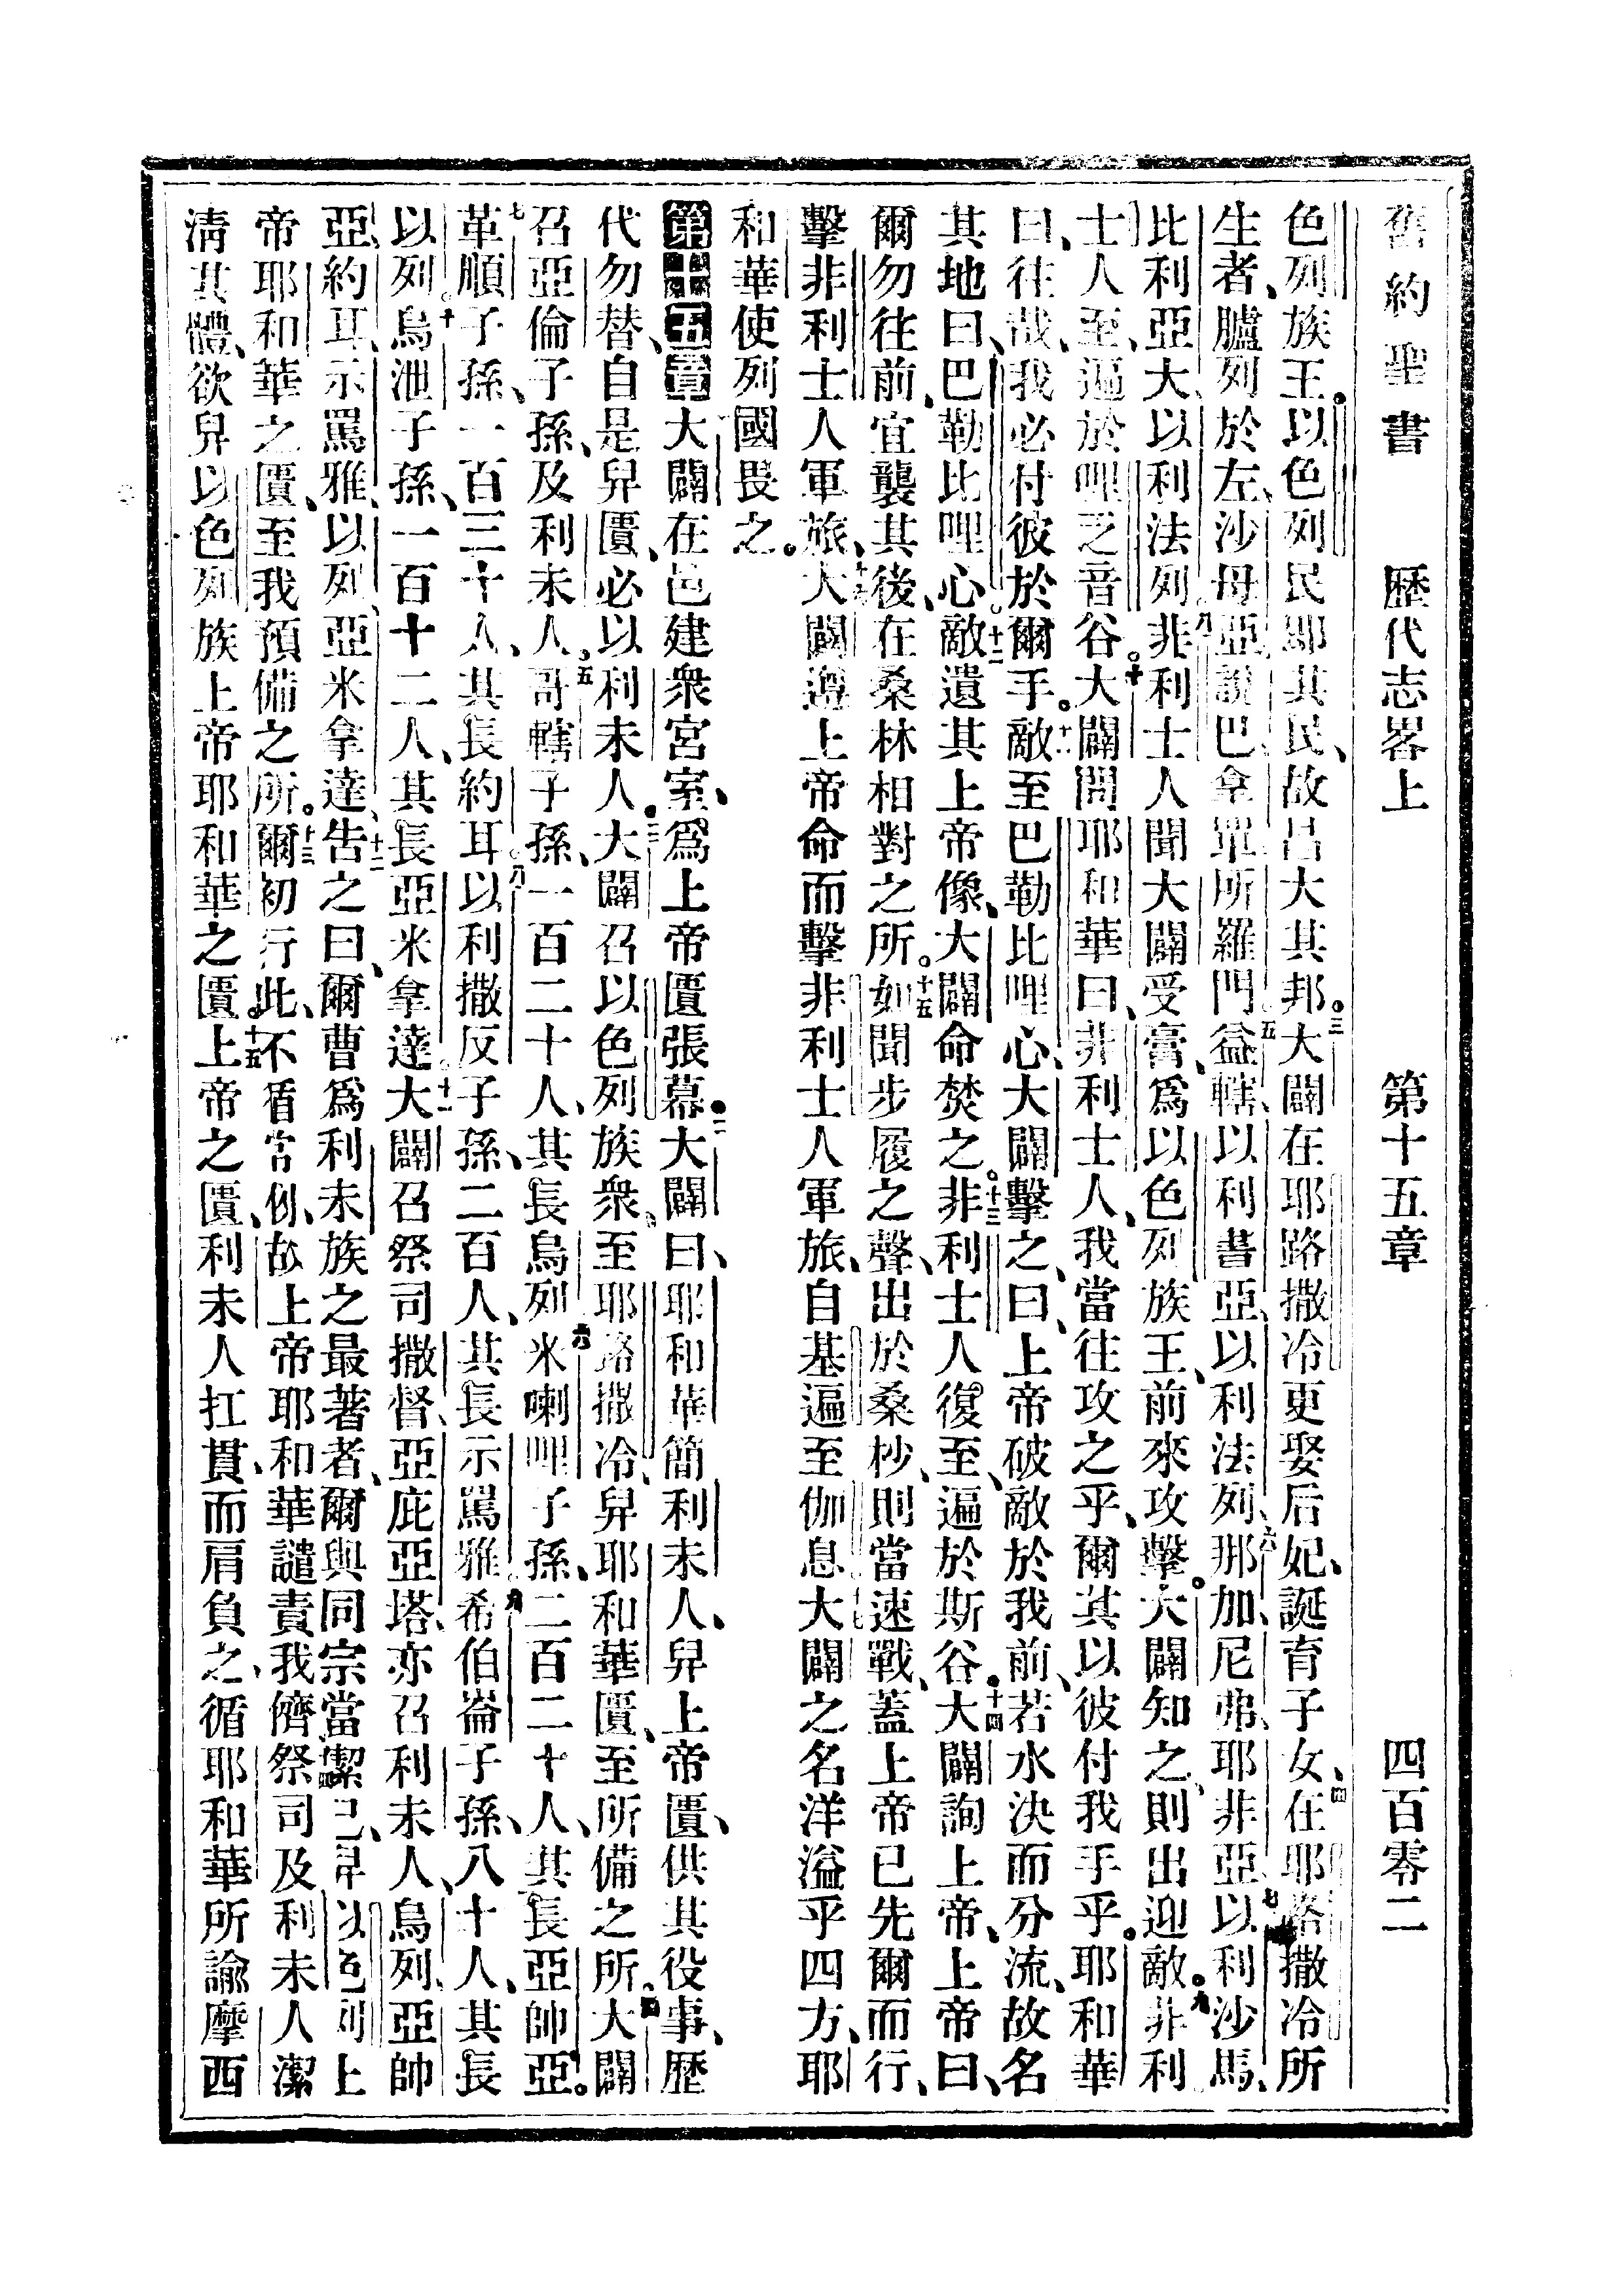 舊約聖書 歷代志畧上 第十五章 四百零二
色列族王。以色列民卽其民、故昌大其邦。三大闢在耶路撒冷更娶后妃、誕育子女、四在耶路撒冷所
生者、臚列於左、沙母亞、說巴、拿單、所羅門、五益轄、以利書亞、以利法列、六那加、尼弗、耶非亞、七以利沙馬、
比利亞大、以利法列。八非利士人聞大闢受膏、爲以色列族王、前來攻擊。大闢知之、則出迎敵。九非利
士人至、遍於哩乏音谷。十大闢問耶和華曰、非利士人、我當往攻之乎、爾其以彼付我手乎。耶和華
曰、往哉、我必付彼於爾手。十一敵至巴勒比哩心、大闢擊之、曰、上帝破敵於我前、若水決而分流、故名
其地曰、巴勒比哩心。十二敵遺其上帝像、大闢命焚之。十三非利士人復至、遍於斯谷。十四大闢詢上帝、上帝曰、
爾勿往前、宜襲其後、在桑林相對之所。十五如聞步履之聲、出於桑杪、則當速戰、蓋上帝已先爾而行、
擊非利士人軍旅、十六大闢遵上帝命而擊非利士人軍旅、自基遍至伽息、十七大闢之名洋溢乎四方、耶
和華使列國畏之。
第十五章 大闢在邑建衆宮室、爲上帝匱張幕。二大闢曰、耶和華簡利未人、舁上帝匱、供其役事、歷
代勿替、自是舁匱、必以利未人。三大闢召以色列族衆、至耶路撒冷、舁耶和華匱、至所備之所。四大闢
召亞倫子孫、及利未人。五哥轄子孫、一百二十人、其長烏列。六米喇哩子孫、二百二十人、其長亞帥亞。
七革順子孫、一百三十人、其長約耳。八以利撒反子孫、二百人、其長示罵雅。九希伯崙子孫、八十人、其長
以列。十烏泄子孫、一百十二人、其長亞米拿達。十一大闢召祭司撒督、亞庇亞塔、亦召利未人、烏列、亞帥
亞、約耳、示罵雅、以列、亞米拿達、十二告之曰、爾曹爲利未族之最著者、爾與同宗當潔己、舁以色列上
帝耶和華之匱、至我預備之所。十三爾初行此、不循常例、故上帝耶和華譴責我儕。十四祭司及利未人潔
淸其體、欲舁以色列族上帝耶和華之匱。十五上帝之匱、利未人扛貫、而肩負之、循耶和華所諭摩西